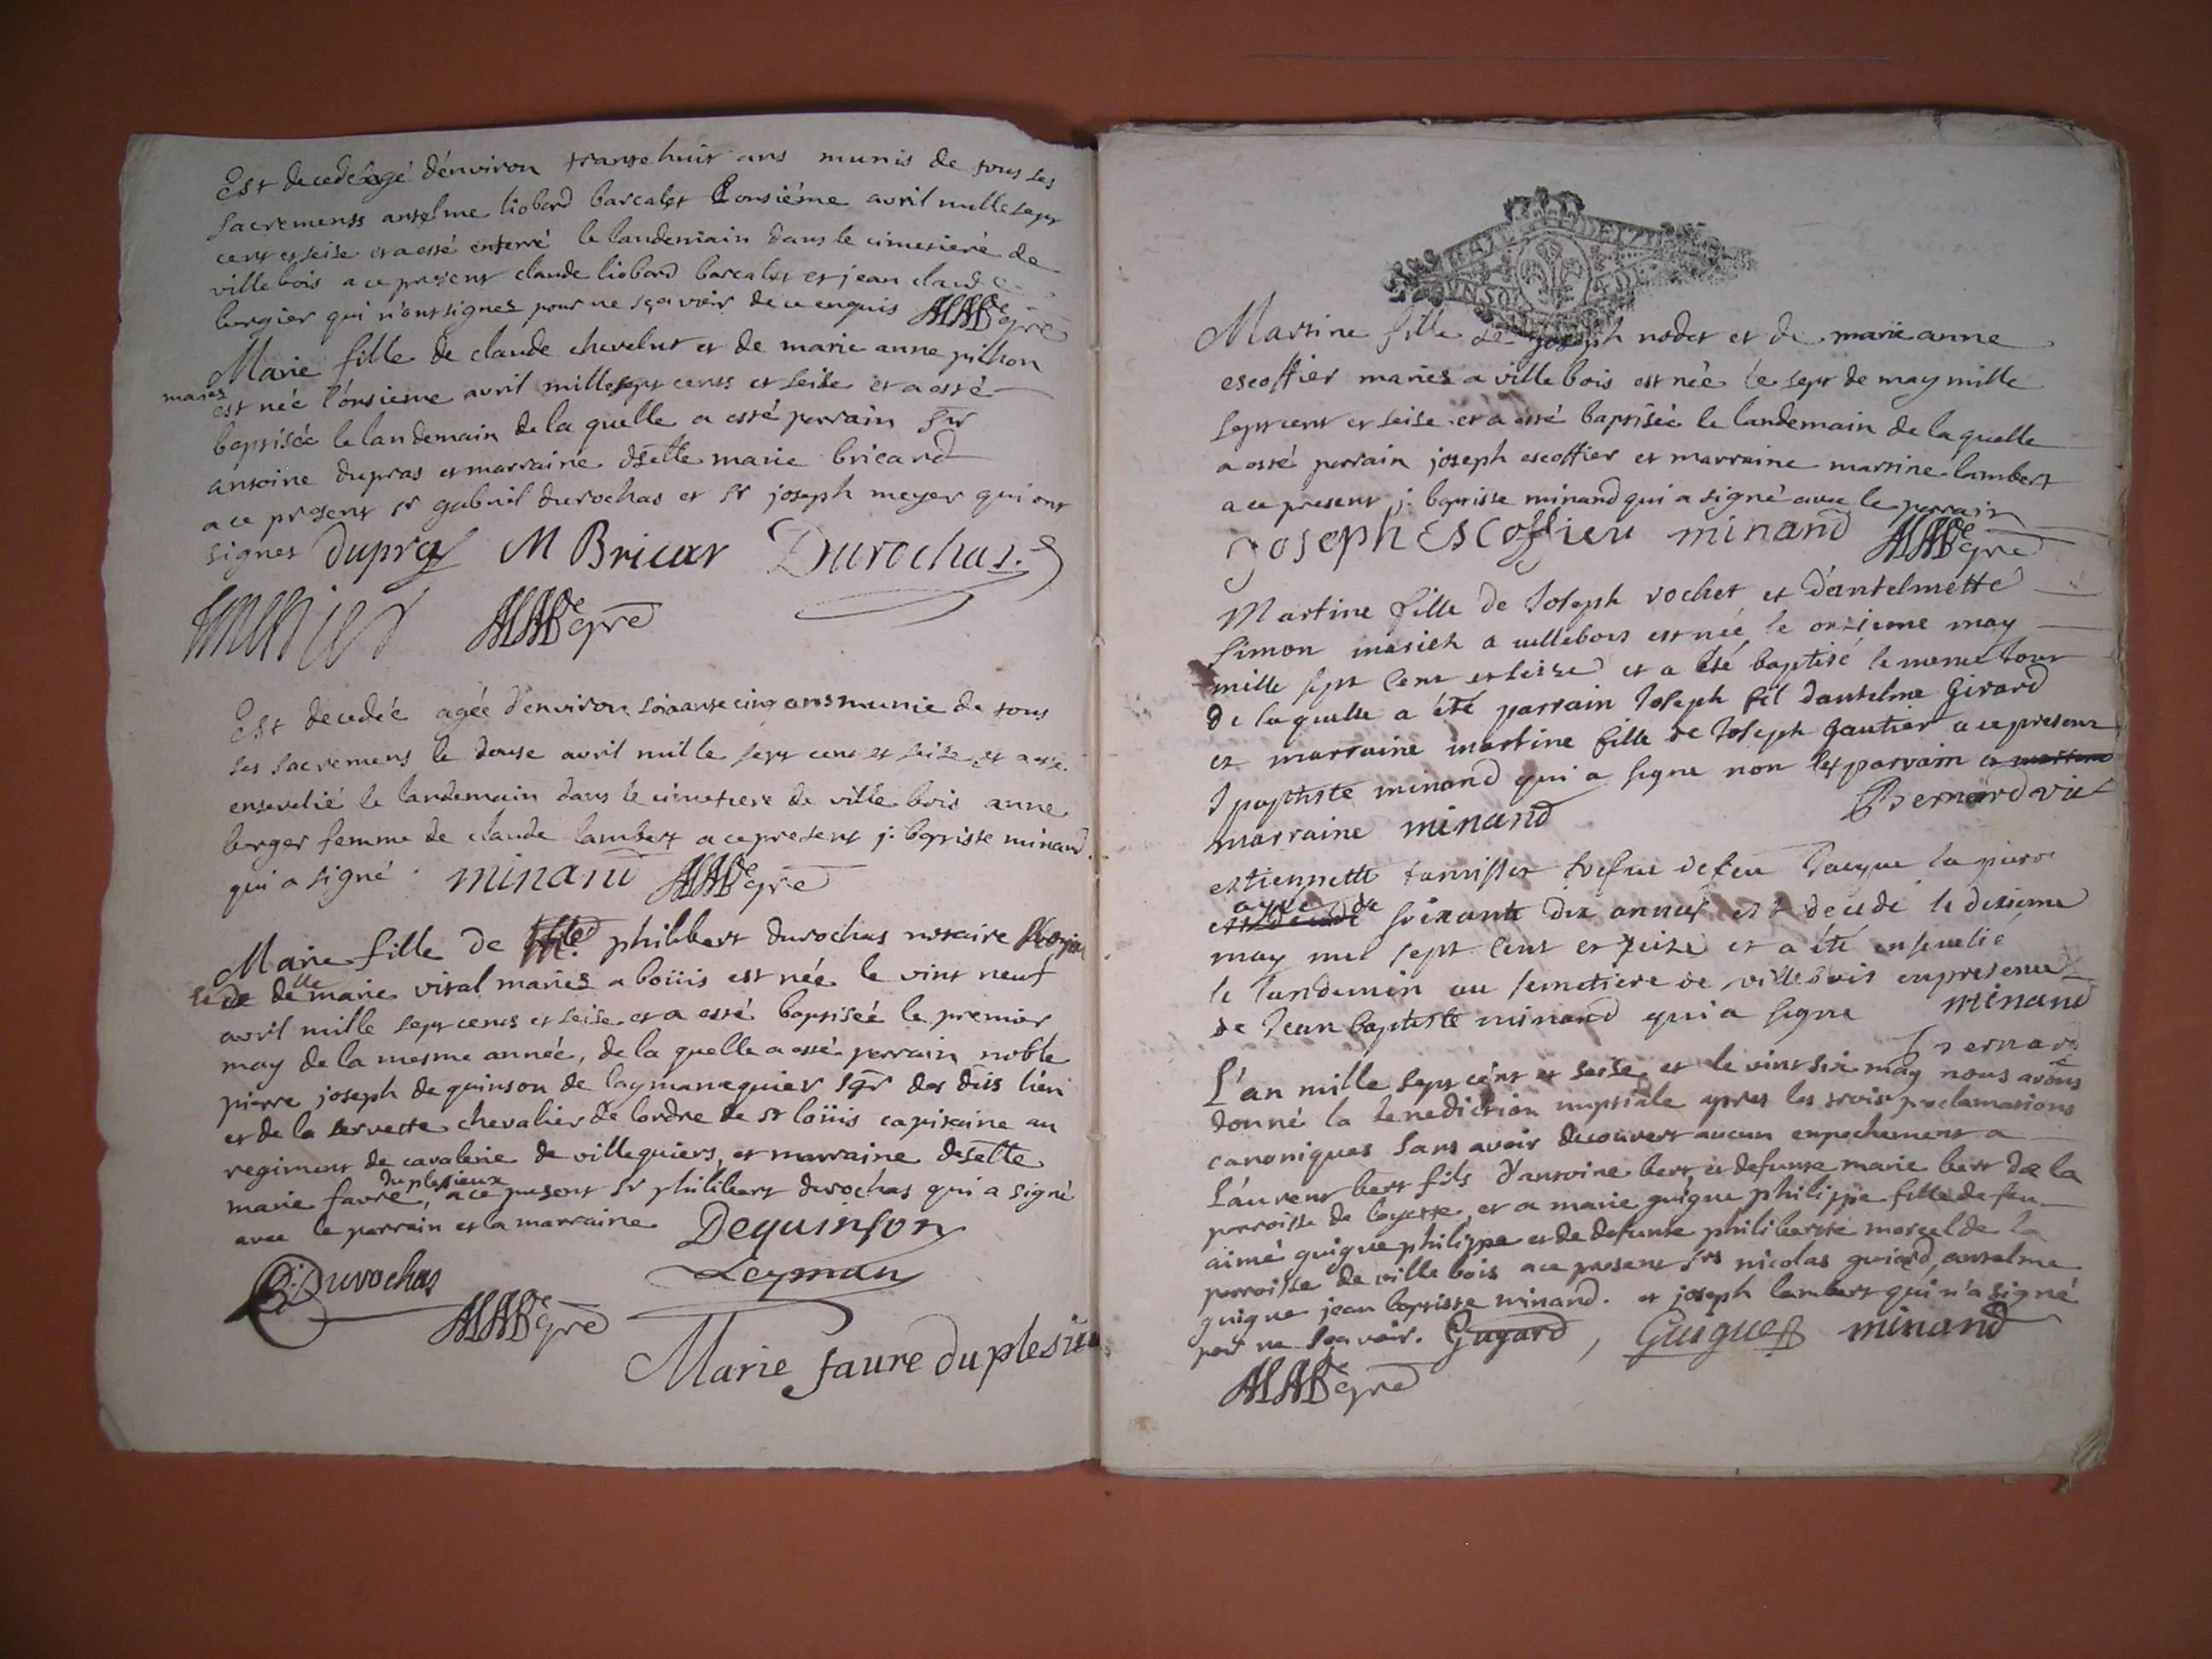 Est decedé agé d'environ trante huit ans munis de tous ses
sacrements antelme liobard barcalet l'onsiéme avril mille sept
cent et seise et a esté enterré le landemain dans le cimetieré de
ville bois a ce present claude liobard barcalet et jean claude
bergier qui n'ont signez pour ne sçavoir de ce enquis
Marie fille de claude chevelut et de marie anne pithon
mariez
est née l'onsieme avril mille sept cents et seise et a esté
baptisée le landemain de la quelle a esté perrain Sr
antoine dupras et marraine dselle marie bricard
a ce present sr gabriel durochas et sr joseph meyer qui ont
signes dupra M Bricar Durochas
Est decedée agée d'environ soixante cinq ans munie de tous
ses sacremens le douse avril mille sept cent et seise et a esté
ensevelié le landemain dans le cimetiere de ville bois anne
berger femme de claude lambert a ce present j. baptiste minand
qui a signé minand
Marie fille de philibert durochas notaire
et de delle marie vital mariez a boüis est née le vint neuf
avril mille sept cents et seise et a esté baptisée le premier
may de la mesme année, de la quelle a esté perrain noble
pierre joseph de quinson de laymanequier sgr des dits lieu
et de la servette chevalier de lordre de st loüis capitaine au
regiment de cavalerie de villequiers, et marraine dselle
duplessieux
marie favre, a ce present sr philibert durochas qui a signé
avec le perrain et la marraine Dequinson
Durochas Leyman
Marie faure du plesieu
Martine fille de joseph nodet et de marie anne
escoffier mariez a ville bois est née le sept de may mille
sept cent et seise et a esté baptisée le landemain de la quelle
a esté perrain joseph escoffier et marraine martine lambert
a ce present j. baptiste minand qui a signé avec le perrain
joseph Escoffieu minand
Martine fille de Joseph rochet et d'antelmette
simon mariez a villebois est née le onzieme may
mille sept cent et seize et a été baptisé le meme jour
de laquelle a été parrain Joseph fil dantelme Girard
et marraine martine fille de Joseph Gautier a ce present
J baptiste minand qui a signe non les parrain et
marraine minand Bernard vic
estiennette vefue de feu Jacque la piere
agée de
soixante dix annéés est decedé le dixieme
may mil sept cent et seize et a été ensevelie
le landemin au semetiere de ville bois en presence
de Jean baptiste minand qui a signe minand
Bernard
L'an mille sept cent et seise et le vint six may nous avons
donné la benediction nuptiale apres les trois proclamations
canoniques sans avoir decouvert aucun enpechement a
Laurent bert fils d'antoine bert et defunte marie bert de la
perroisse de loyette, et a marie guigue philippe fille de feu
aimé guigue philippe et de defunte philiberte morcel de la
perroisse de ville bois a ce present srs nicolas guiard, antelme
guigue jean baptiste minand. et joseph lambert qui n'a signé
pour ne sçavoir. Guyard, Guigue minand